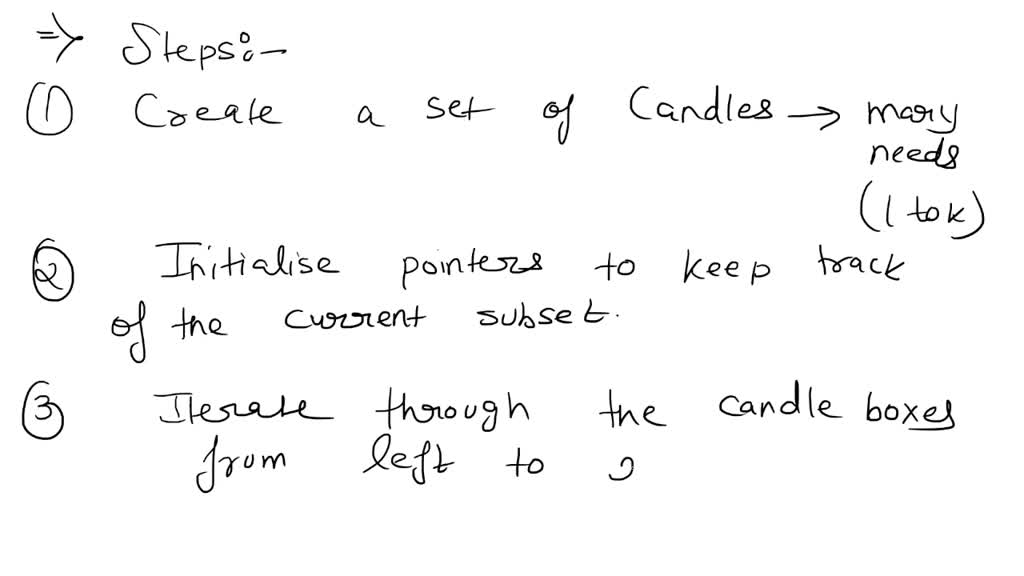 ⇒ Steps:-
① Create a set of Candles → mary
needs
(1 to k)
② Initialise pointers to keep track
of the current subset.
③ Iterate through the candle boxes
from left to